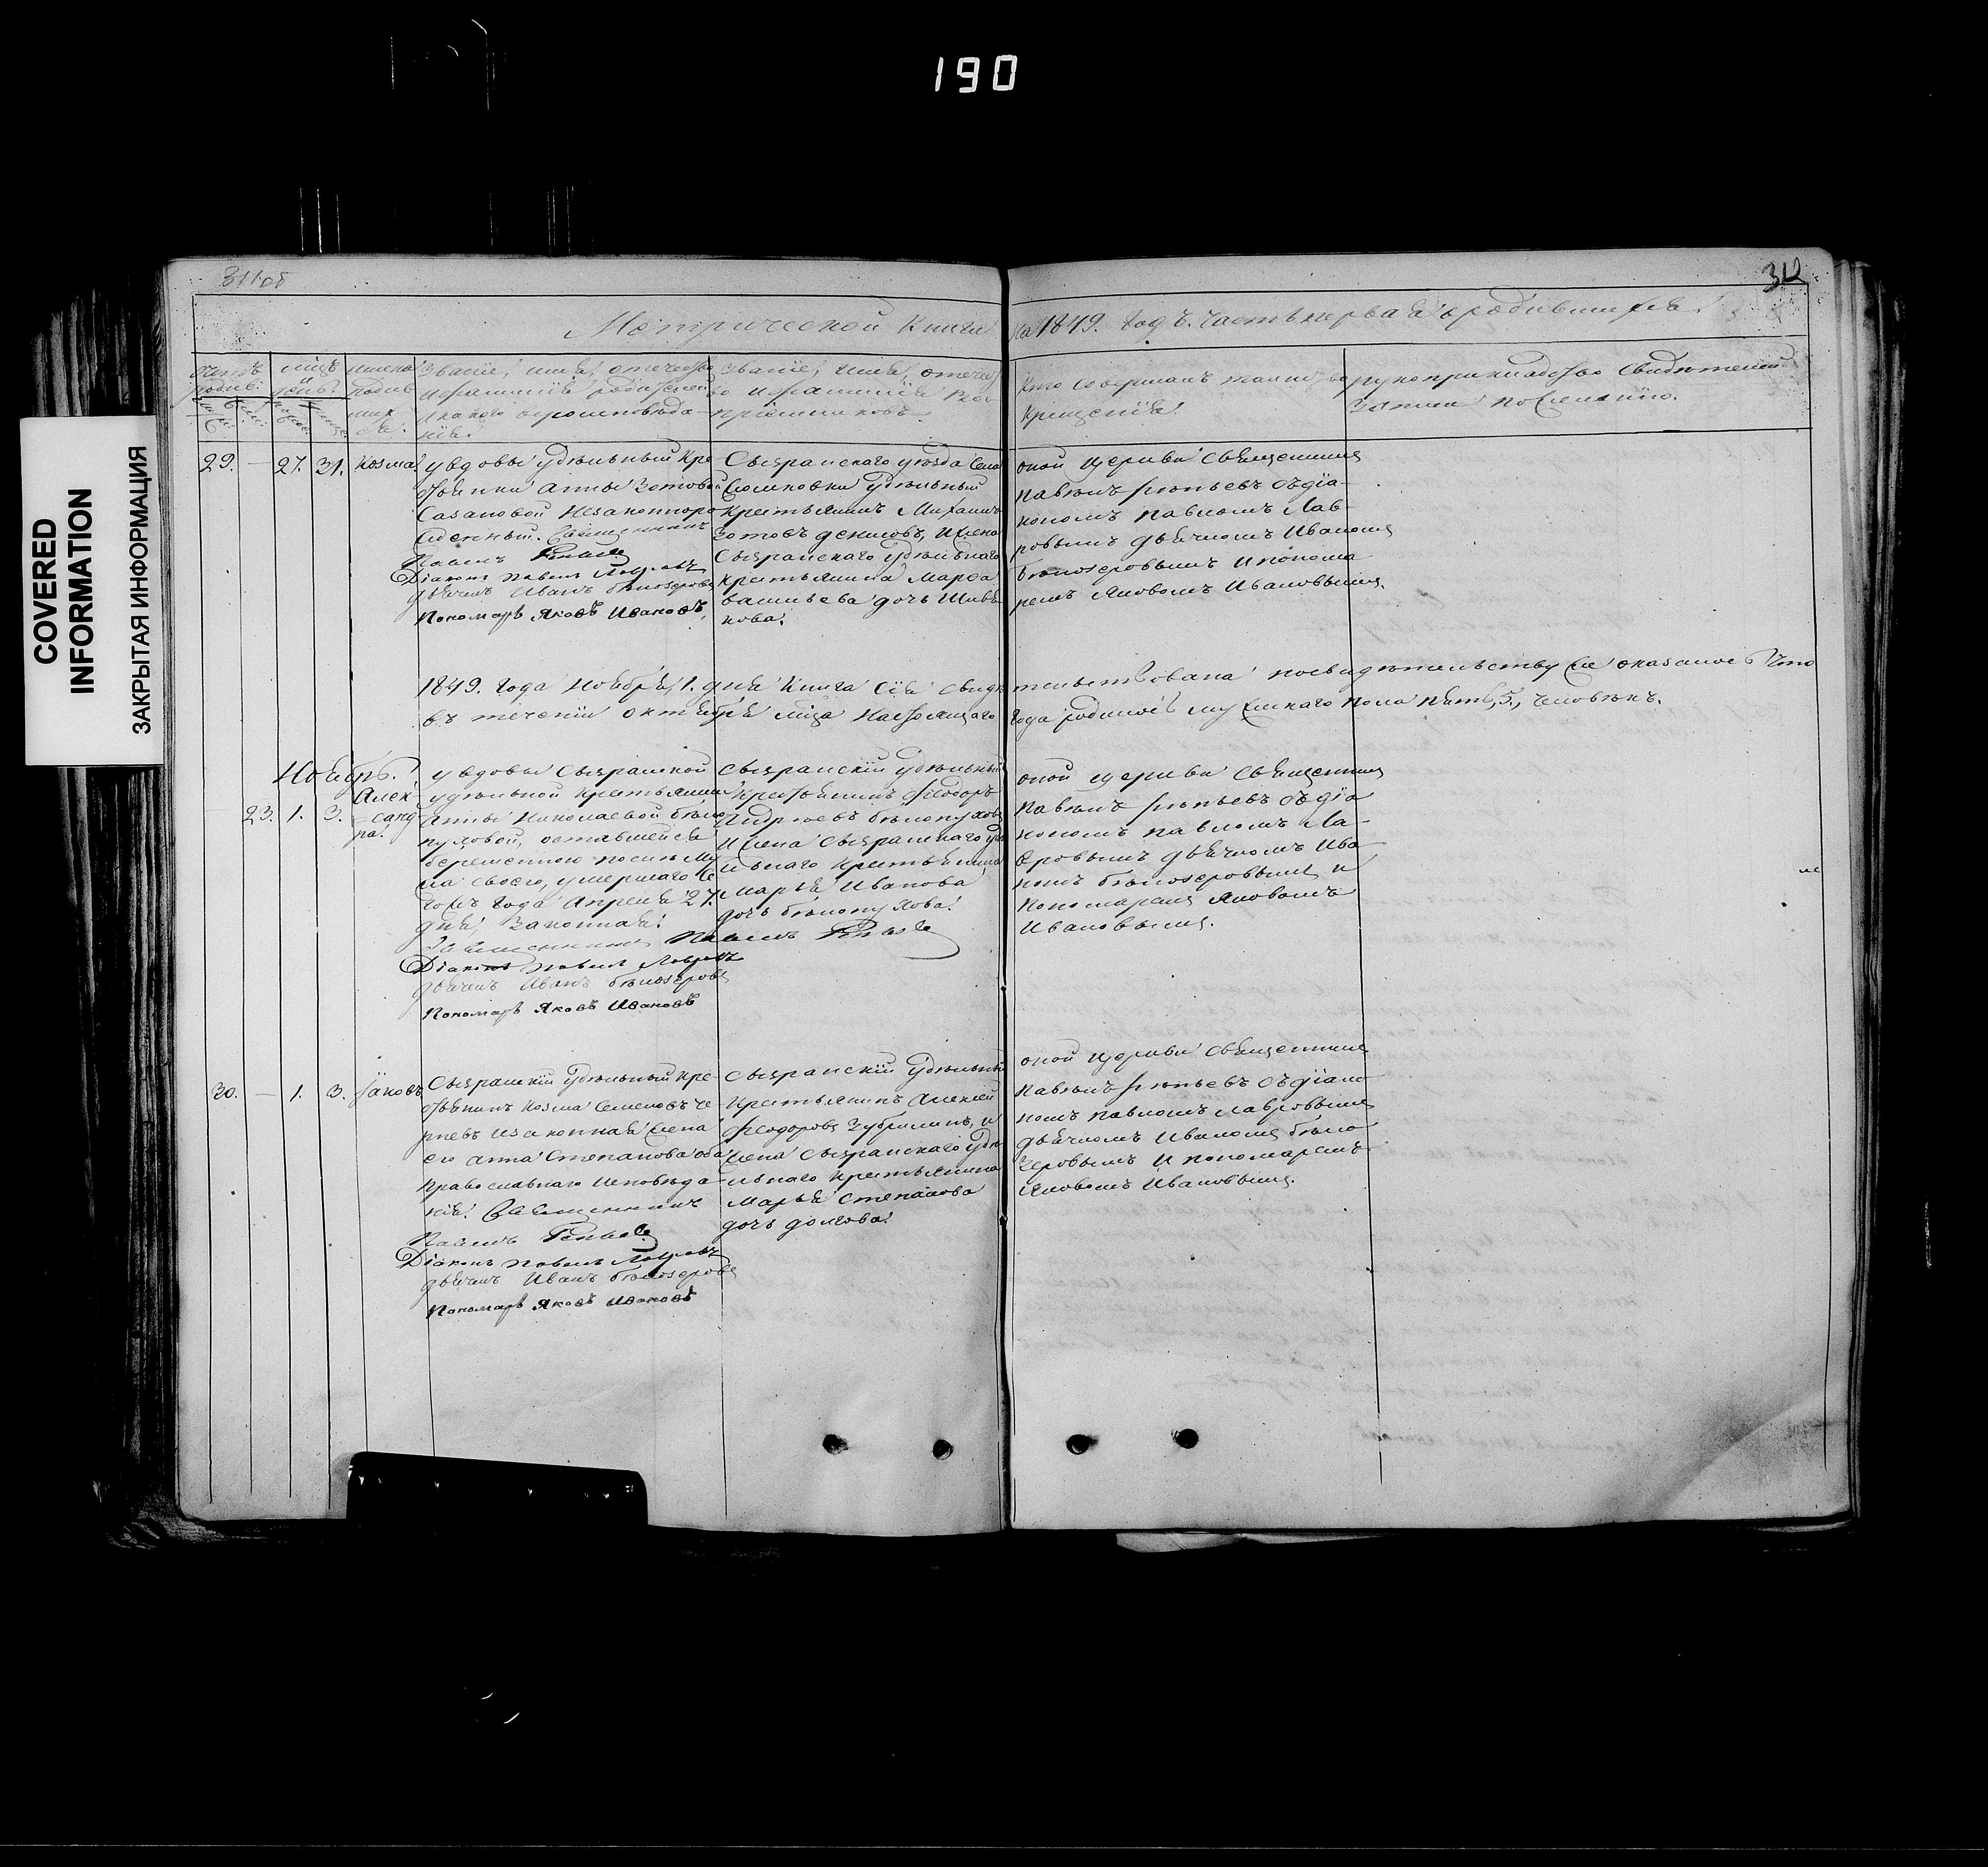 190
COVERED
INFORMATION
ЗАКРЫТАЯ ИНФОРМАЦИЯ
311об
312
Метрической Книги на 1849. годъ. часть первая о родившихся.
Званіе, имя, отчество
и какого вероисповѣда-
нія.
Званіе, имя, отече
пріемниковъ.
Кто совершалъ таинство
Крещенія.
рукоприкладство свидѣтелей
записи по желанію.
29. — 27. 31. Козма
у вдовы удѣльный кре-
стьянки Анны Зотовой
Сазановой незаконноро-
жденный. Священникъ
Павелъ
Діаконъ Павелъ Лавровъ
дьячекъ Иванъ Бѣлозеровъ
Пономарь Яковъ Ивановъ,
Сызранскаго уѣзда села
удѣльный
крестьянинъ Михаилъ
Зотовъ Денисовъ, и жена
Сызранскаго удѣльнаго
крестьянина Марѳа
Васильева дочь
нова.
оной церкви священник
Павелъ съ діа-
кономъ Павломъ Лав-
ровымъ дьячкомъ Иваномъ
Бѣлозеровымъ и понома
ремъ Яковомъ Ивановымъ.
1849. года Ноября 1. дня книга сія свидѣтельствована по свидѣтельству же оказалось что
въ теченіи октября мца настоящаго года родилось мужескаго пола пять, 5, человѣкъ.
Ноябрь.
23. 1. 3. Алек
санд
ра.
у вдовы сызранской
удѣльной крестьянки
Анны Николаевой Бѣло
пуховой, оставшейся
беременною послѣ му
жа своего, умершаго се
гожъ года Апреля 27.
дня, законная.
Священникъ Павелъ
Діаконъ Павелъ Лавровъ
дьячекъ Иванъ Бѣлозеровъ
Пономарь Яковъ Ивановъ
Сызранскій удѣльный
крестьянинъ Ѳеодоръ
Андреевъ Бѣлопуховъ
и жена сызранскаго удѣ
льнаго крестьянина
Марья Иванова
дочь Бѣлопухова.
оной церкви священник
Павелъ съ діа
кономъ Павломъ Ла-
вровымъ дьячкомъ Ива
номъ Бѣлозеровымъ и
пономаремъ Яковомъ
Ивановымъ.
30. — 1. 3. Іаковъ
Сызранскій удѣльный кре-
стьянинъ Козма Семеновъ Че-
рневъ и законная жена
его Анна Степанова оба
православнаго исповѣда-
нія. Священникъ
Павелъ
Діаконъ Павелъ Лавровъ
дьячекъ Иванъ Бѣлозеровъ
Пономарь Яковъ Ивановъ
Сызранскій удѣльный
крестьянинъ Алексей
Ѳеодоровъ Зубрилинъ, и
жена Сызранскаго удѣ
льнаго крестьянина
Марья Степанова
дочь Долгова.
оной церкви священник
Павелъ съ діако
номъ Павломъ Лавровымъ
дьячкомъ Иваномъ Бѣло
зеровымъ и пономаремъ
Яковомъ Ивановымъ.